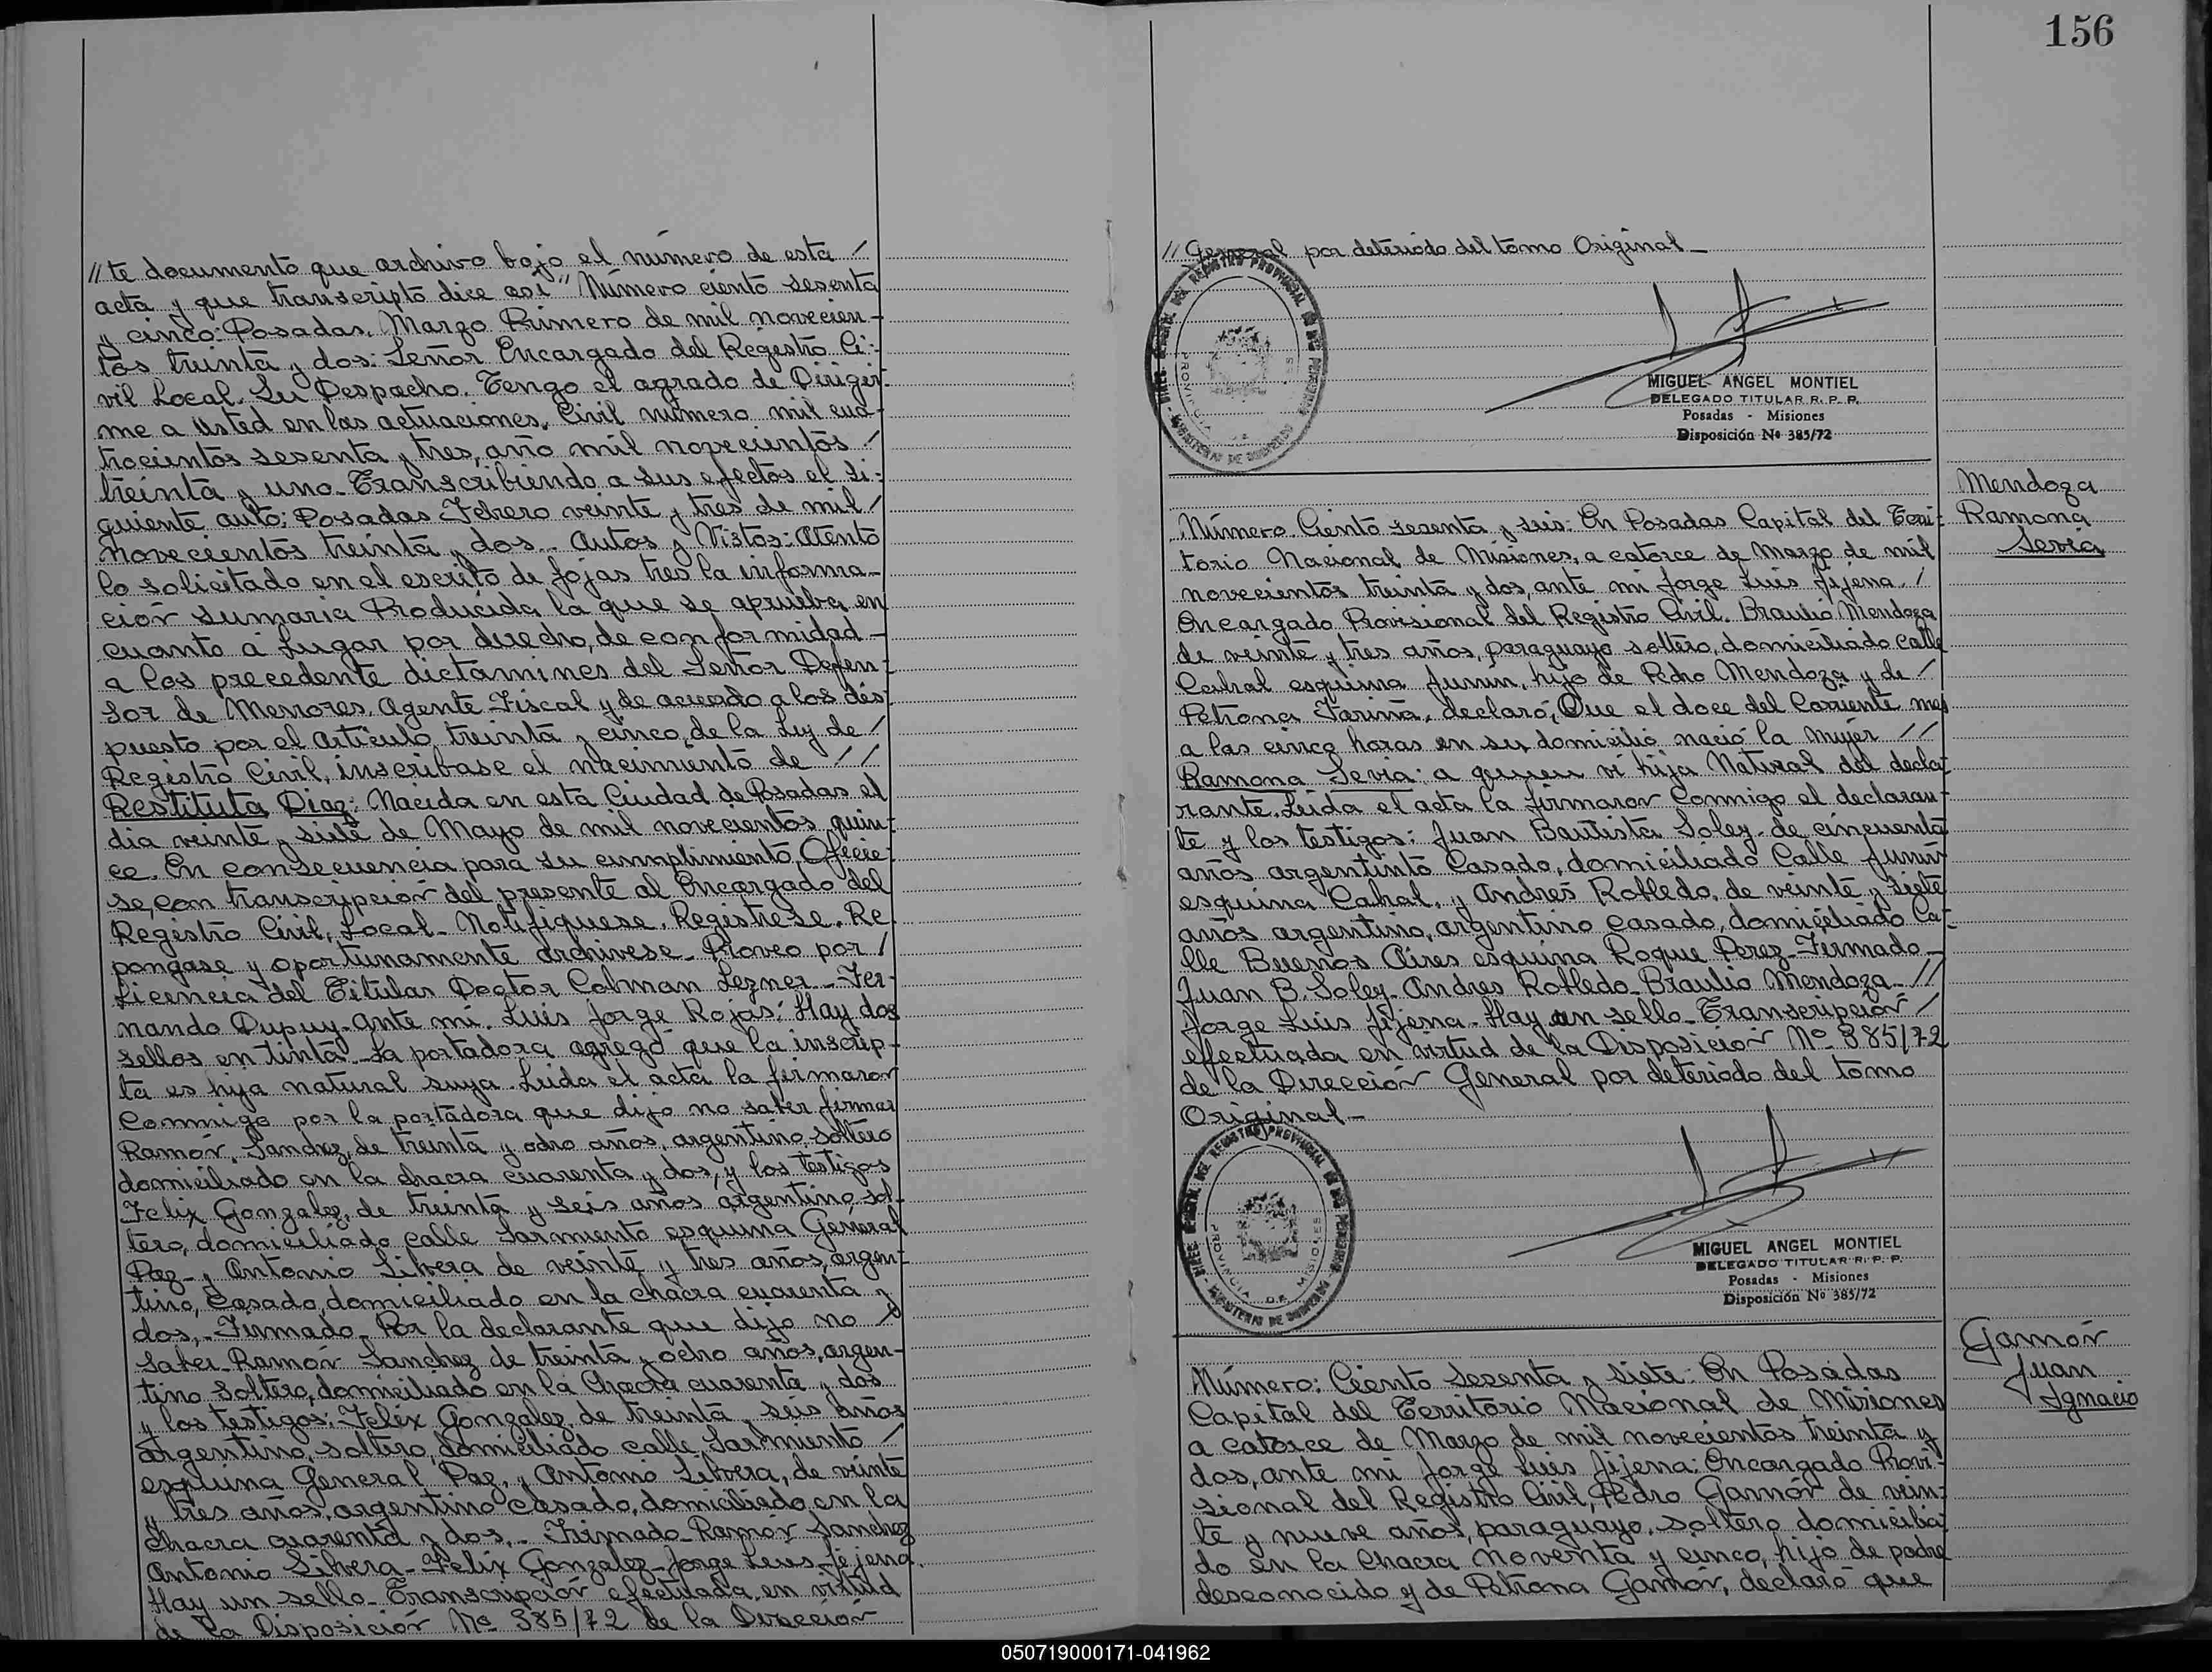 //te documento que archivo bajo el número de esta /
acta y que transcripto dice así "Número ciento sesenta
y cinco: Posadas, Marzo Primero de mil novecien-
tos treinta y dos: Señor Encargado del Registro Ci-
vil Local. Su Despacho. Tengo el agrado de Dirigir-
me a Usted en las actuaciones, Civil número mil cua-
trocientos sesenta y tres, año mil novecientos /
treinta y uno. Transcribiendo a sus efectos el si-
guiente auto: Posadas Febrero veinte y tres de mil /
novecientos treinta y dos.. Autos y Vistos: Atento
lo solicitado en el escrito de fojas tres la informa-
ción sumaria Producida la que se aprueba en
cuanto a Lugar por derecho, de conformidad -
a los precedente dictamines del Señor Defen-
sor de Menores, Agente Fiscal y de acuerdo a los dis-
puesto por el Artículo treinta y cinco de la Ley de /
Registro Civil, inscribase el nacimiento de //
Restituta Diaz: Nacida en esta Ciudad de Posadas el
dia veinte y siete de Mayo de mil novecientos quin-
ce. En consecuencia para su cumplimiento Ofície-
se, con transcripción del presente al Encargado del
Registro Civil, Local. Notifiquese. Registrese. Re
pongase y oportunamente archivese. Proveo por /
Licencia del Titular Doctor Colman Lezner - Fer-
nando Dupuy. Ante mi. Luis Jorge Rojas: Hay dos
sellos en tinta. La portadora agregó que la inscrip-
ta es hija natural suya. Leida el acta la firmaron
Conmigo por la portadora que dijo no saber firmar
Ramón Sanchez, de treinta y ocho años, argentino soltero
domiciliado en la chacra cuarenta y dos, y los testigos
Felix Gonzalez, de treinta y seis años argentino sol-
tero, domiciliado calle Sarmiento esquina General
Paz - y Antonio Silvera de veinte y tres años, argen-
tino, Casado, domiciliado en la chacra cuarenta y
dos,. Firmado. Por la declarante que dijo no
saber Ramón Sanchez de treinta y ocho años, argen-
tino soltero, domiciliado en la Chacra cuarenta y dos
y los testigos: Felix Gonzalez, de treinta y seis años
argentino, soltero, domiciliado calle Sarmiento /
esquina General Paz, y Antonio Silvera, de veinte
y tres años, argentino Casado, domiciliado en la
chacra cuarenta y dos,. Firmado Ramón Sanchez
Antonio Silvera - Felix Gonzalez - Jorge Luis Jijena.
Hay un sello. Transcripción efectuada en virtud
de la Disposición Nº 385/72 de la Dirección
156
// General por deteriodo del tomo Original -
MIGUEL ANGEL MONTIEL
DELEGADO TITULAR R. P. P.
Posadas - Misiones
Disposición Nº 385/72
Mendoza
Ramona
Sevia
Número Ciento sesenta y seis: En Posadas Capital del Terri-
torio Nacional de Misiones, a catorce de Marzo de mil
novecientos treinta y dos, ante mi Jorge Luis Jijena /
Encargado Provisional del Registro Civil. Braulio Mendoza
de veinte y tres años, paraguayo soltero, domiciliado calle
Cabral esquina Junin, hijo de Pedro Mendoza y de /
Petrona Fariña, declaró, Que el doce del Corriente mes
a las cinco horas en su domicilio nació la mujer //
Ramona Sevia: a quien vi hija Natural del decla-
rante. Leida el acta la firmaron Conmigo el declaran-
te y los testigos: Juan Bautista Soley de cincuenta
años argentinto Casado, domiciliado Calle Junin
esquina Cabral, y Andres Robledo, de veinte y siete
años argentino, argentino casado, domiciliado Ca-
lle Buenos Aires esquina Roque Perez - Firmado -
Juan B. Soley - Andres Robledo - Braulio Mendoza - //
Jorge Luis Jijena - Hay un sello - Transcripción /
efectuada en virtud de la Disposición Nº 385/72
de la Dirección General por deteriodo del tomo
Original -
MIGUEL ANGEL MONTIEL
DELEGADO TITULAR R. P. P.
Posadas - Misiones
Disposición Nº 385/72
Gamón
Juan
Ignacio
Número: Ciento Sesenta y Siete: En Posadas
Capital del Territorio Nacional de Misiones
a catorce de Marzo de mil novecientos treinta y
dos, ante mi Jorge Luis Jijena: Encargado Provi-
sional del Registro Civil, Pedro Gamón de vein-
te y nueve años, paraguayo, soltero domicilia-
do en la Chacra Noventa y cinco, hijo de padre
desconocido y de Petrona Gamón, declaró que
050719000171-041962